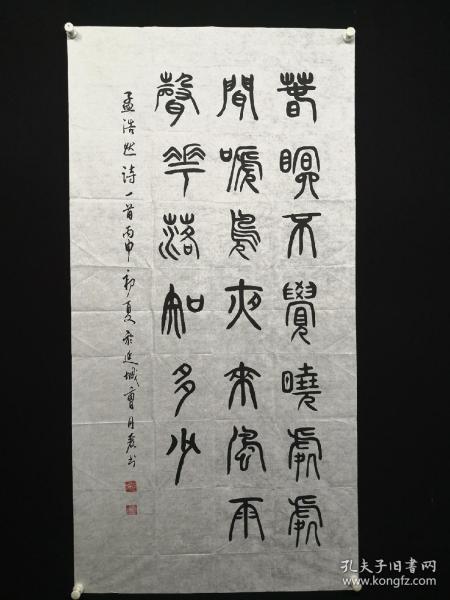 春瞑不覺曉處處
聞嗁鳥夜來風雨
聲華落知多少
孟浩然诗一首丙申初夏
孔夫子旧书网
www.kongfz.com